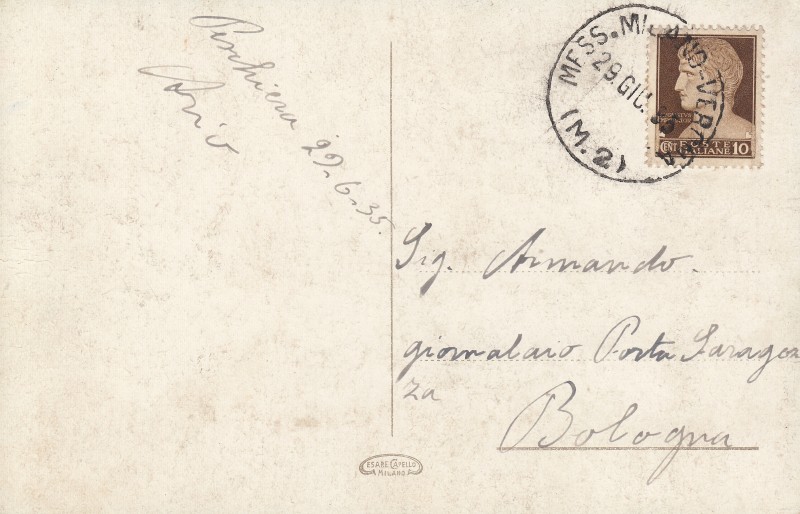 Peschiera 29.6.35.
MESS. MILANO-VE
29.GIU. 35
(M.2)
POSTE
CENT ITALIANE 10
Sig. Armando.
giornalaio Porta Saragoz
za
Bologna
CESARE CAPELLO
MILANO